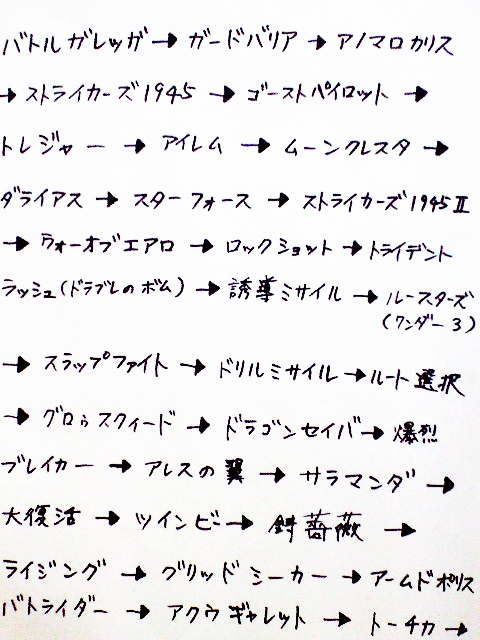 バトルガレッガ→ガードバリア→アノマロカリス
→ストライカーズ1945→ゴーストパイロット→
トレジャー→アイレム→ムーンクレスタ→
ダライアス→スターフォース→ストライカーズ1945Ⅱ
→ウォーオブエアロ→ロックショット→トライデント
ラッシュ(ドラブレのボム)→誘導ミサイル→ルースターズ
(ワンダー3)
→スラップファイト→ドリルミサイル→ルート選択
→グロゥスクィード→ドラゴンセイバ→爆烈
ブレイカー→アレスの翼→サラマンダ→
大復活→ツインビー→針薔薇→
ライジング→グリッドシーカー→アームドポリス
バトライダー→アクウギャレット→トーチカ→